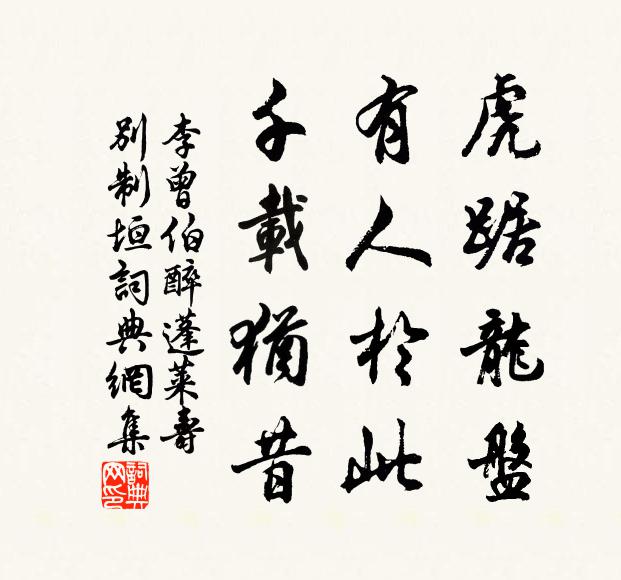 虎踞龍盤
有人於此
千載猶昔
李曾伯醉蓬萊壽
別制垣詞典網集
詞典网印